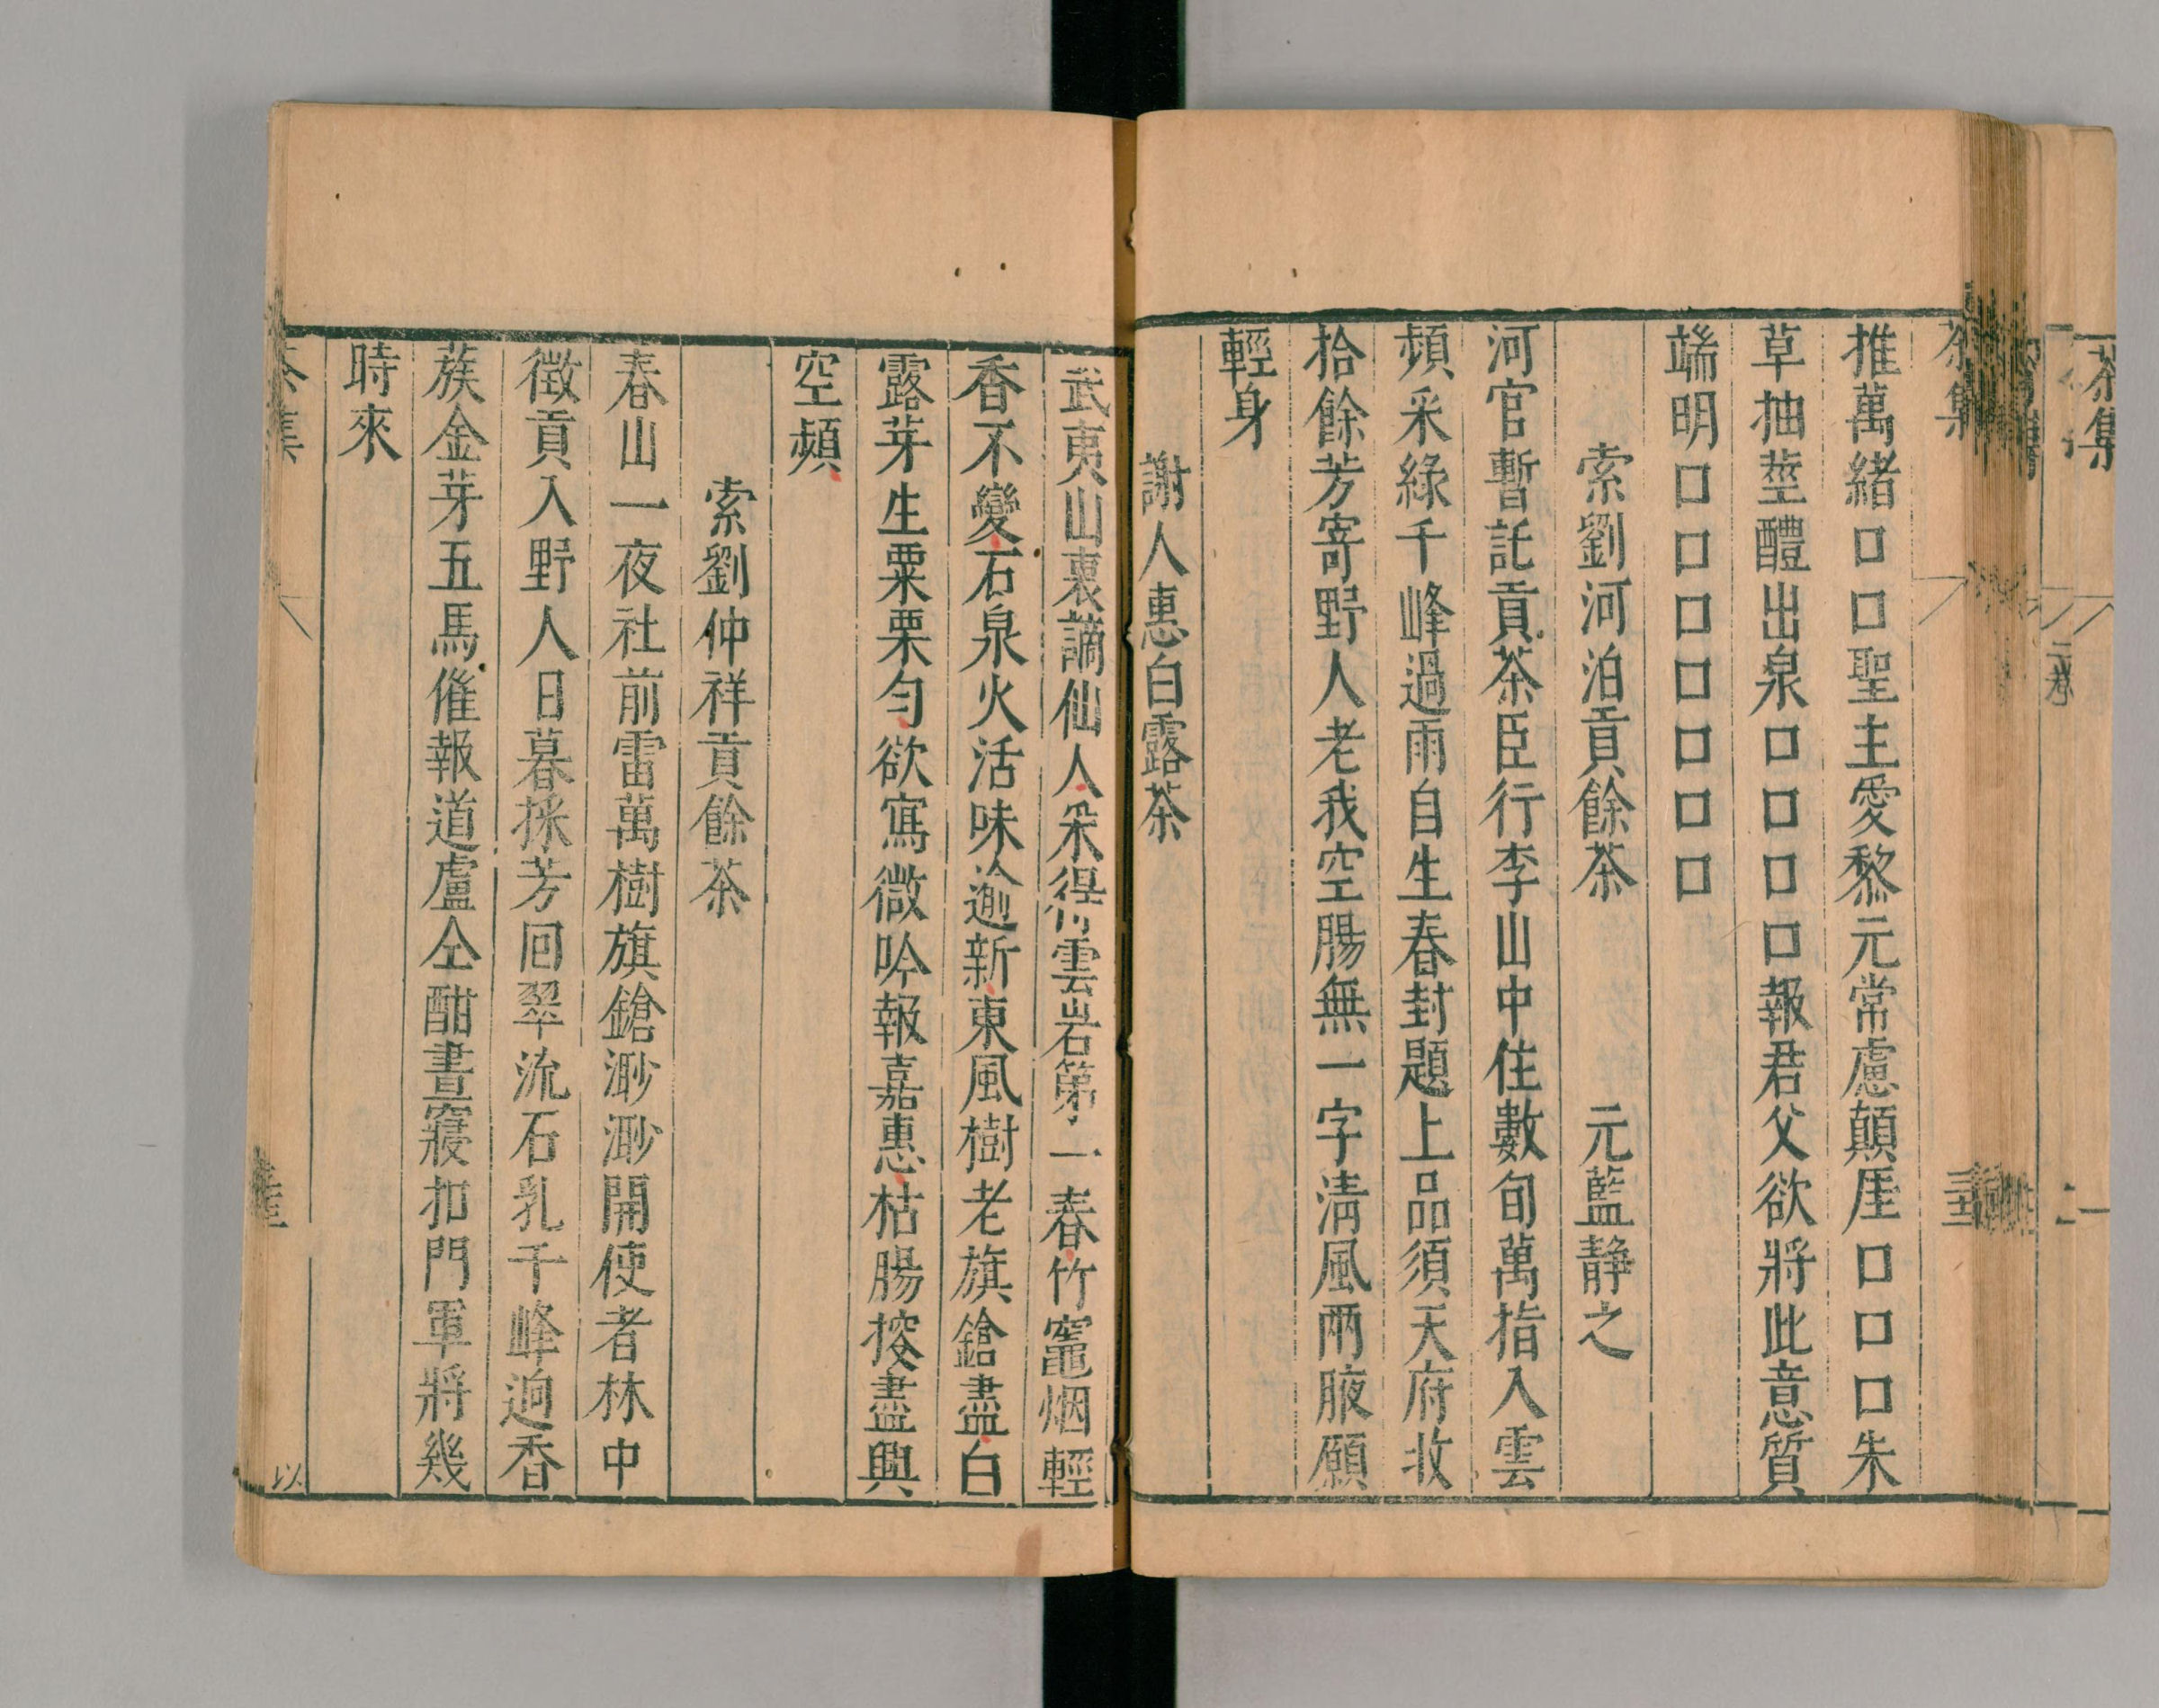 推萬緒口口聖主愛黎元常慮顛厓口口口朱
草抽莖醴出泉口口口口報君父欲將此意質
端明口口口口口口口
索劉河泊貢餘茶　元藍静之
河官暫託貢茶臣行李山中住數旬萬指入雲
頻采綠千峰過雨自生春封題上品須天府收
拾餘芳寄野人老我空腸無一字清風兩腋願
輕身
謝人惠白露茶
武夷山裏謫仙人采得雲岩第一春竹竈烟輕
香不變石泉火活味逾新東風樹老旗鎗盡白
露芽生粟栗勻欲寫微吟報嘉惠枯腸搜盡興
空頻
索劉仲祥貢餘茶
春山一夜社前雷萬樹旗鎗渺渺開使者林中
徵貢入野人日暮採芳回翠流石乳千峰逈香
蔟金芽五馬催報道盧仝酣晝寢扣門軍將幾
時來